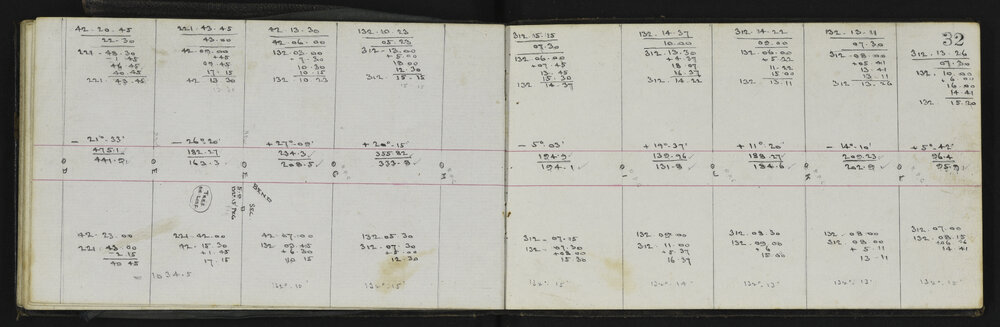 42.20.45
22.30
221.43.30
-1.45
46.45
40.45
221.43.45
221.43.45
43.00
42.09.00
+45
09.45
17.15
42.13.30
13.30
42.13.30
42.06.00
132.03.00
+7.30
10.30
10.15
132.10.23
132.10.23
05.23
312.13.00
+5.00
18.00
12.30
312.15.15
15.15
- 21°.33'
475.1
441.9
- 26°.20'
182.17
163.3
+27°.09'
234.3
208.5
+20°.15'
355.82
333.8
D
E
F
G
H
TREE
ON LINE
BEND
SEC
42.23.00
221.43.00
-2.15
40.45
= 1034.5
221.44.00
42.15.30
+1.45
17.15
42.07.00
132.03.45
+6.30
10.15
132°.10'
132.05.30
312.07.30
+5.00
12.30
132°.15'
32
312.15.15
07.30
132.06.00
+07.45
13.45
15.30
132.14.37
132.14.37
10.00
312.13.30
+4.37
18.07
16.37
312.14.22
312.14.22
09.00
132.06.00
+5.22
11.22
15.00
132.13.11
132.13.11
07.30
312.08.00
+05.41
13.41
13.11
312.13.26
312.13.26
07.30
132.10.00
+6.00
16.00
14.41
132.15.20
- 5°.03'
194.9
194.1
+19°.37'
139.96
131.8
+11°.20'
188.27
184.6
- 14°.10'
209.23
202.9
+5°.42'
96.4
95.9
I
K
312.07.15
132.07.30
+08.00
15.30
132°.15'
132.09.00
312.11.00
+5.37
16.37
132°.14'
312.08.30
132.09.00
+6
15.00
132°.13'
132.08.00
312.08.00
+5.11
13.11
132°.13'
312.07.00
132.08.15
+06.26
14.41
132°.15'